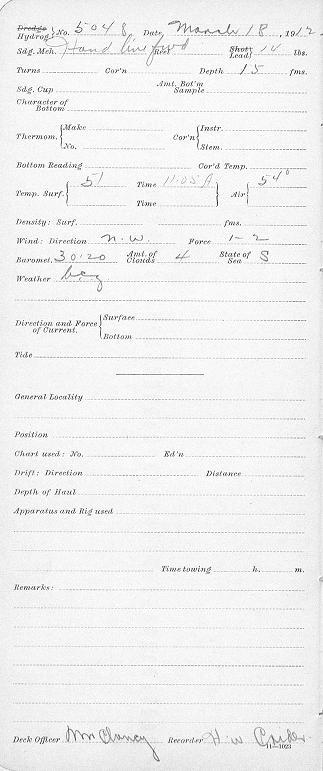 Dredge
Hydrog. No. 5048 Date, March 18, 1912
Sdg. Mch. Hand line fwd Reel Shot Lead 14 lbs.
Turns Cor'n Depth 15 fms.
Sdg. Cup Amt. Bot'm Sample
Character of Bottom
Thermom. Make Cor'n Instr.
No. Stem.
Bottom Reading Cor'd Temp.
Temp. Surf. 51 Time 11:05 A Air 54°
Time
Density: Surf. fms.
Wind: Direction N.W. Force 1-2
Baromet. 30.20 Amt. of Clouds 4 State of Sea S
Weather bcg
Direction and Force of Current. Surface
Bottom
Tide
General Locality
Position
Chart used: No. Ed'n
Drift: Direction Distance
Depth of Haul
Apparatus and Rig used
Time towing h. m.
Remarks:
Deck Officer Wm Clancy Recorder H W
11—1023